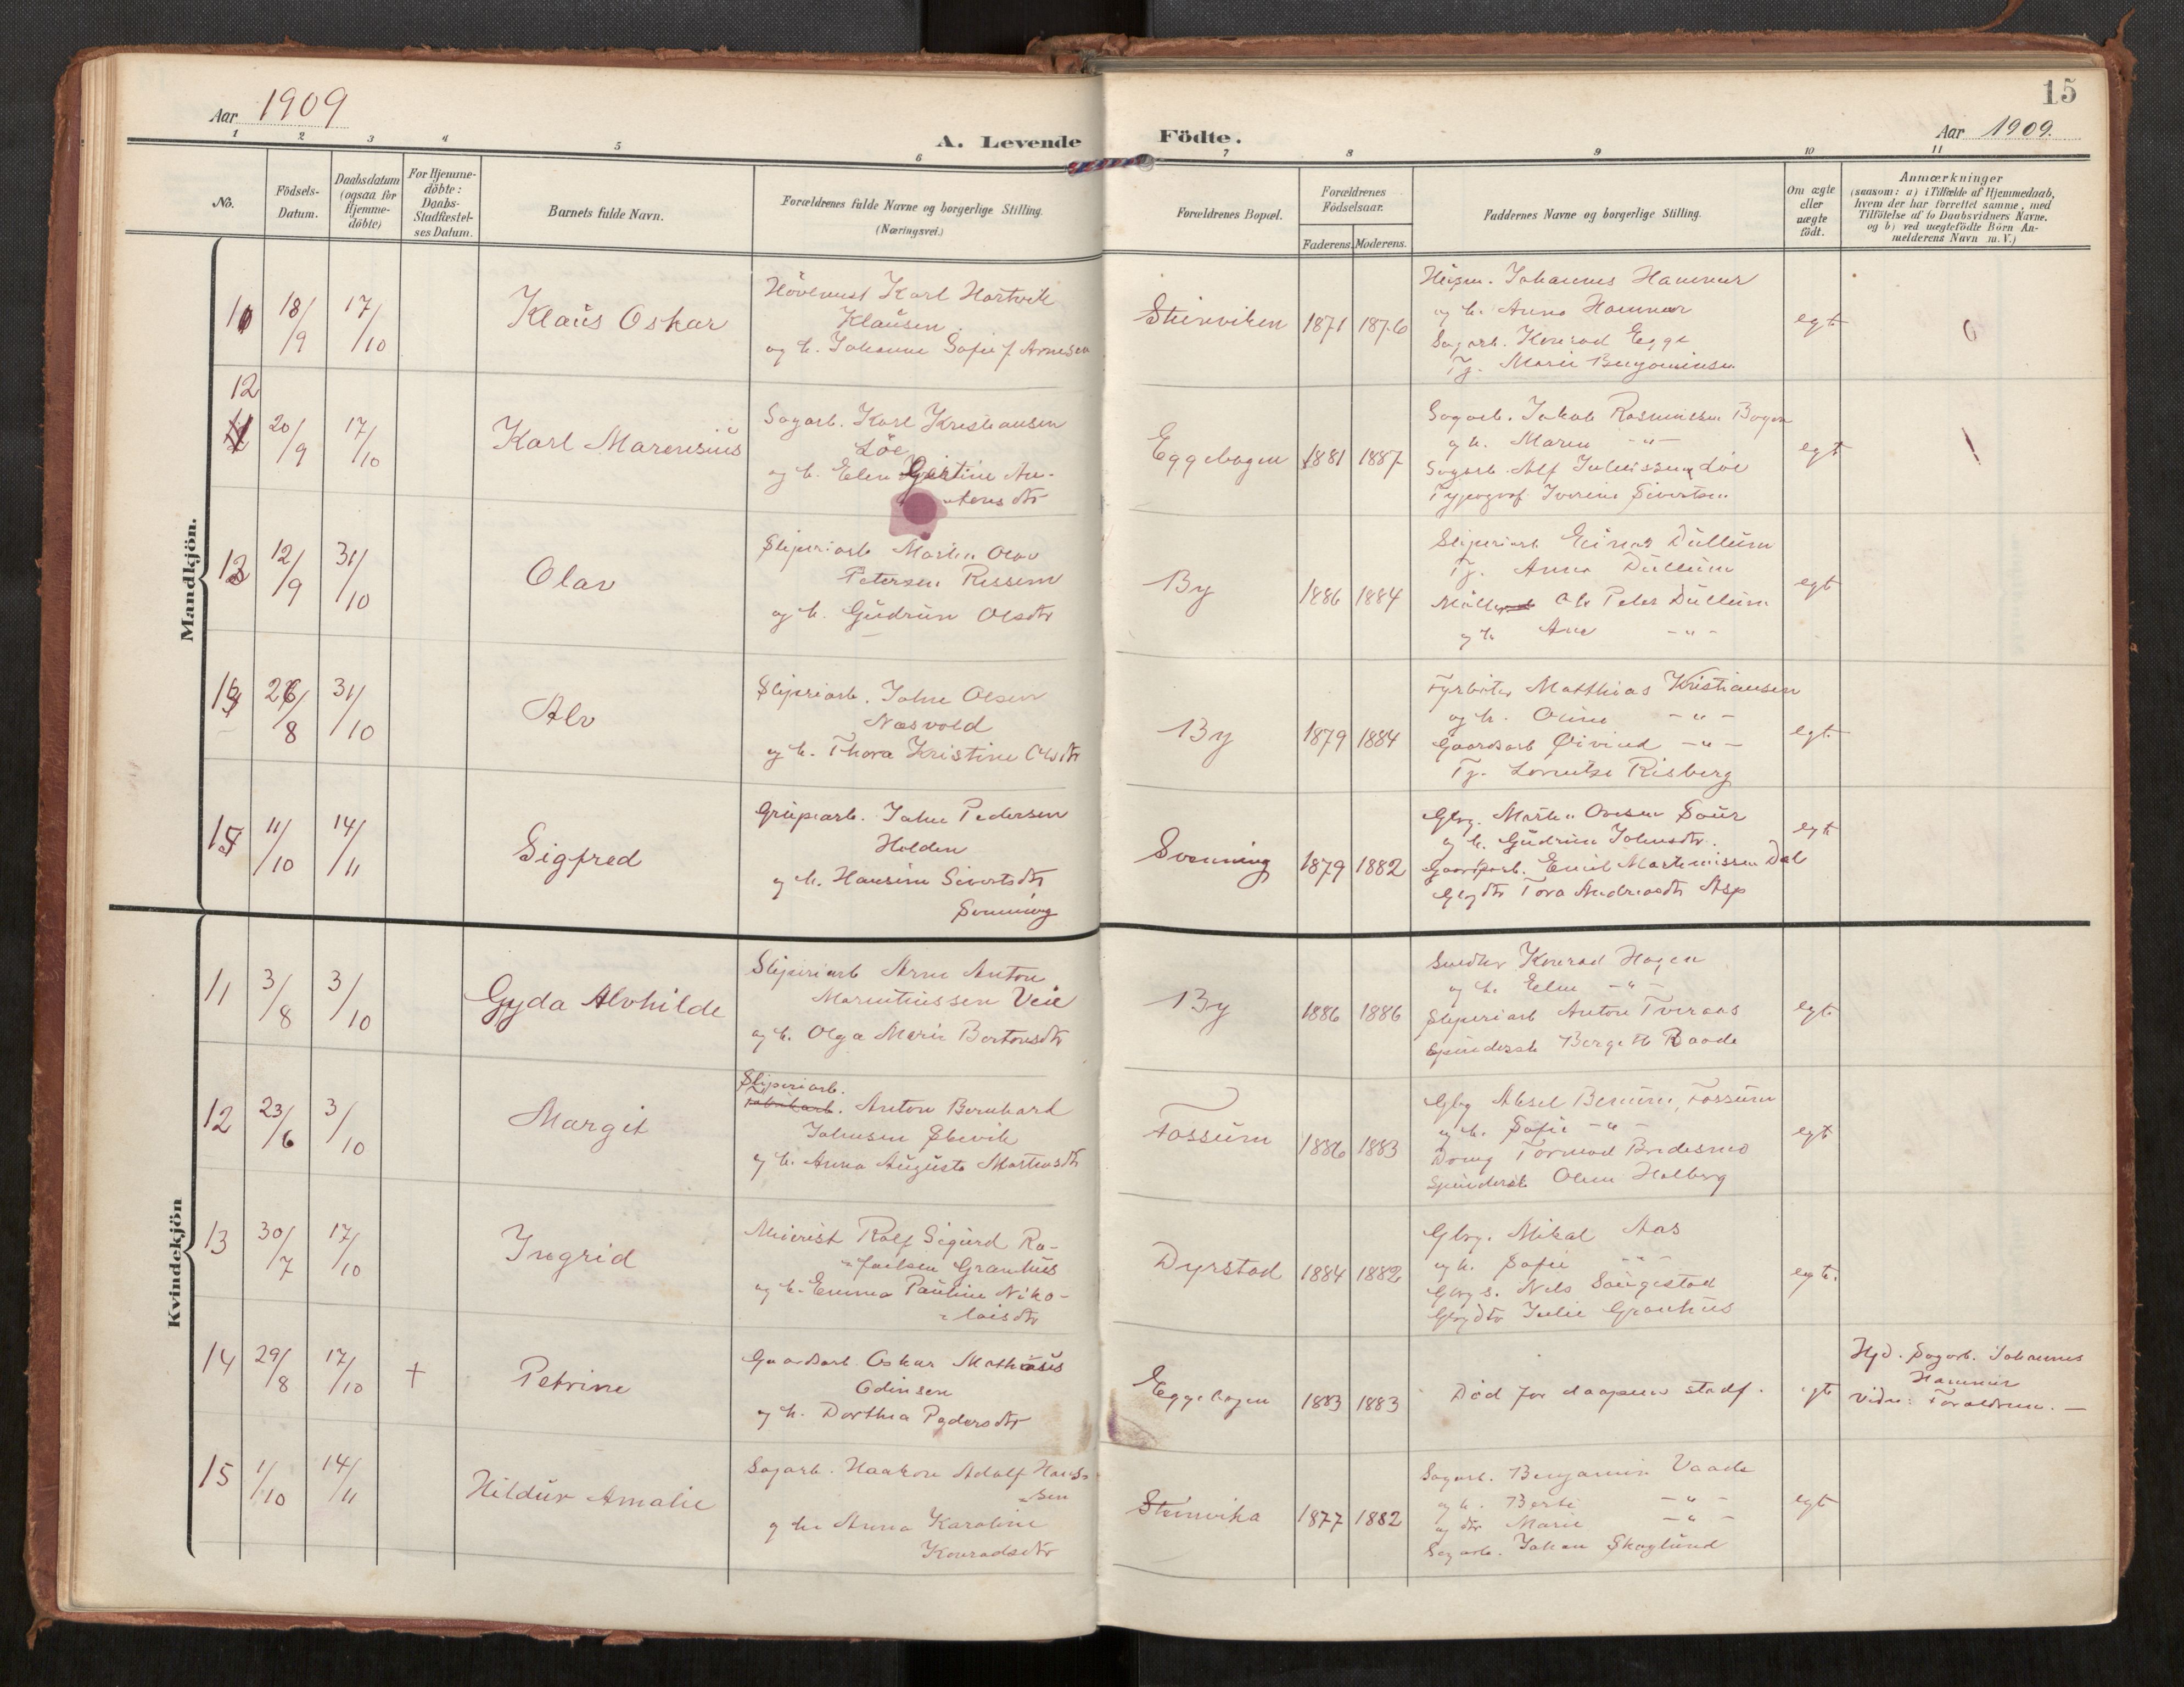 15
Aar 1909
A. Levende Födte.
Aar 1909.
1 2 3 4 5 6 7 8 9 10 11
No.
Födsels-
Datum.
Daabsdatum
(ogsaa for
Hjemme-
döbte)
For Hjemme-
döbte:
Daabs-
Stadfæstel-
ses Datum.
Barnets fulde Navn.
Forældrenes fulde Navne og borgerlige Stilling.
(Næringsvei.)
Forældrenes Bopæl.
Forældrenes
Födselsaar.
Faderens. Moderens.
Faddernes Navne og borgerlige Stilling.
Om ægte
eller
uægte
födt.
Anmærkninger
(saasom: a) i Tilfælde af Hjemmedaab,
hvem der har forrettet samme, med
Tilföielse af to Daabsvidners Navne,
og b) ved uægtefödte Börn An-
melderens Navn m. V.)
Mandkjön.
11 18/9 17/10 Klaus Oskar
Hövlemest Karl Hartvik
Klausen
og h. Johanne Sofie f. Arnesen
Steinviken 1871 1876
Johannes Hammer
og h. Anna Hammer
Sagarb. Konrad Egge
Tj. Marie Benjaminsen
egt
12 20/9 17/10 Karl Marensius
Sagarb. Karl Kristiansen
Löe
og h. Elen Gjertine An-
tonsdtr
Eggebogen 1881 1887
Sagarb. Jakob Rasmussen Bogen
og h. Maren -"-
Sagarb. Alf Juliussen Löe
Typograf Iverine Sivertsen
egt
13 12/9 31/10 Olav
Sliperiarb Martin Olav
Petersen Rissem
og h. Gudrun Olsdtr
By 1886 1884
Sliperiarb Einar Dullum
Tj. Anna Dullum
Möller Ole Peter Dullum
og h Ane -"-
egt
14 26/8 31/10 Alv
Sliperiarb. Johan Olsen
Næsvold
og h. Thora Kristine Olsdtr
By 1879 1884
Fyrböter Matthias Kristiansen
og h. Oline -"-
Gaardsarb Øivind -"-
Tj. Lorentse Risberg
egt.
15 11/10 14/11 Sigfred
Grubearb. Johan Pedersen
Holden
og h. Hansine Sivertsdtr
Svenning
Svenning 1879 1882
Gbg. Martin Ovesen Saur
og h. Gudrun Johnsdtr.
Gaardsarb. Emil Martinussen Dal
Gbgdtr Tora Andreasdtr Asp
egt
Kvindekjön
11 3/8 3/10 Gyda Alvhilde
Sliperiarb Arne Anton
Marentiussen Veie
og h. Olga Marie Bertonsdtr
By 1886 1886
Snedker Konrad Hagen
og h. Ellen -"-
Sliperiarb Anton Tveraas
Spinderske Bergitte Raade
egt
12 23/6 3/10 Margit
Sliperiarb.
Anton Bernhard
Johnsen Skevik
og h. Anna Augusta Martinsdtr
Fossum 1886 1883
Gbg Aksel Fossum
og h. Sofie -"-
Dreng Tormod Bredesmo
Spinderske Oline Holberg
egt
13 30/7 17/10 Ingrid
Meierist Rolf Sigurd Ra-
faelsen Granhus
og h. Emma Pauline Niko-
laisdtr
Dyrstad 1884 1882
Gbg. Mikal Aas
og h. Sofie -"-
Gbg s. Nels Saugestad
Gbgdtr Julie Granhus
egt.
14 29/8 17/10 + Petrine
Gaardsarb Oskar Mathæus
Odinsen
og h. Dorthea Pedersdtr
Eggebogen 1883 1883
Död för daapens stadf.
egt
Hjd. Sagarb. Johannes
Hammer
Vidne: Foraldrene. —
15 1/10 14/11 Hildur Amalie
Sagarb. Haakon Adolf Hans-
sen
og h. Anna Karoline
Konradsdtr
Steinvika 1877 1882
Sagarb. Benjamin Vaade
og h. Berte -"-
og dtr Marie -"-
Sagarb. Johan Skoglund
egt